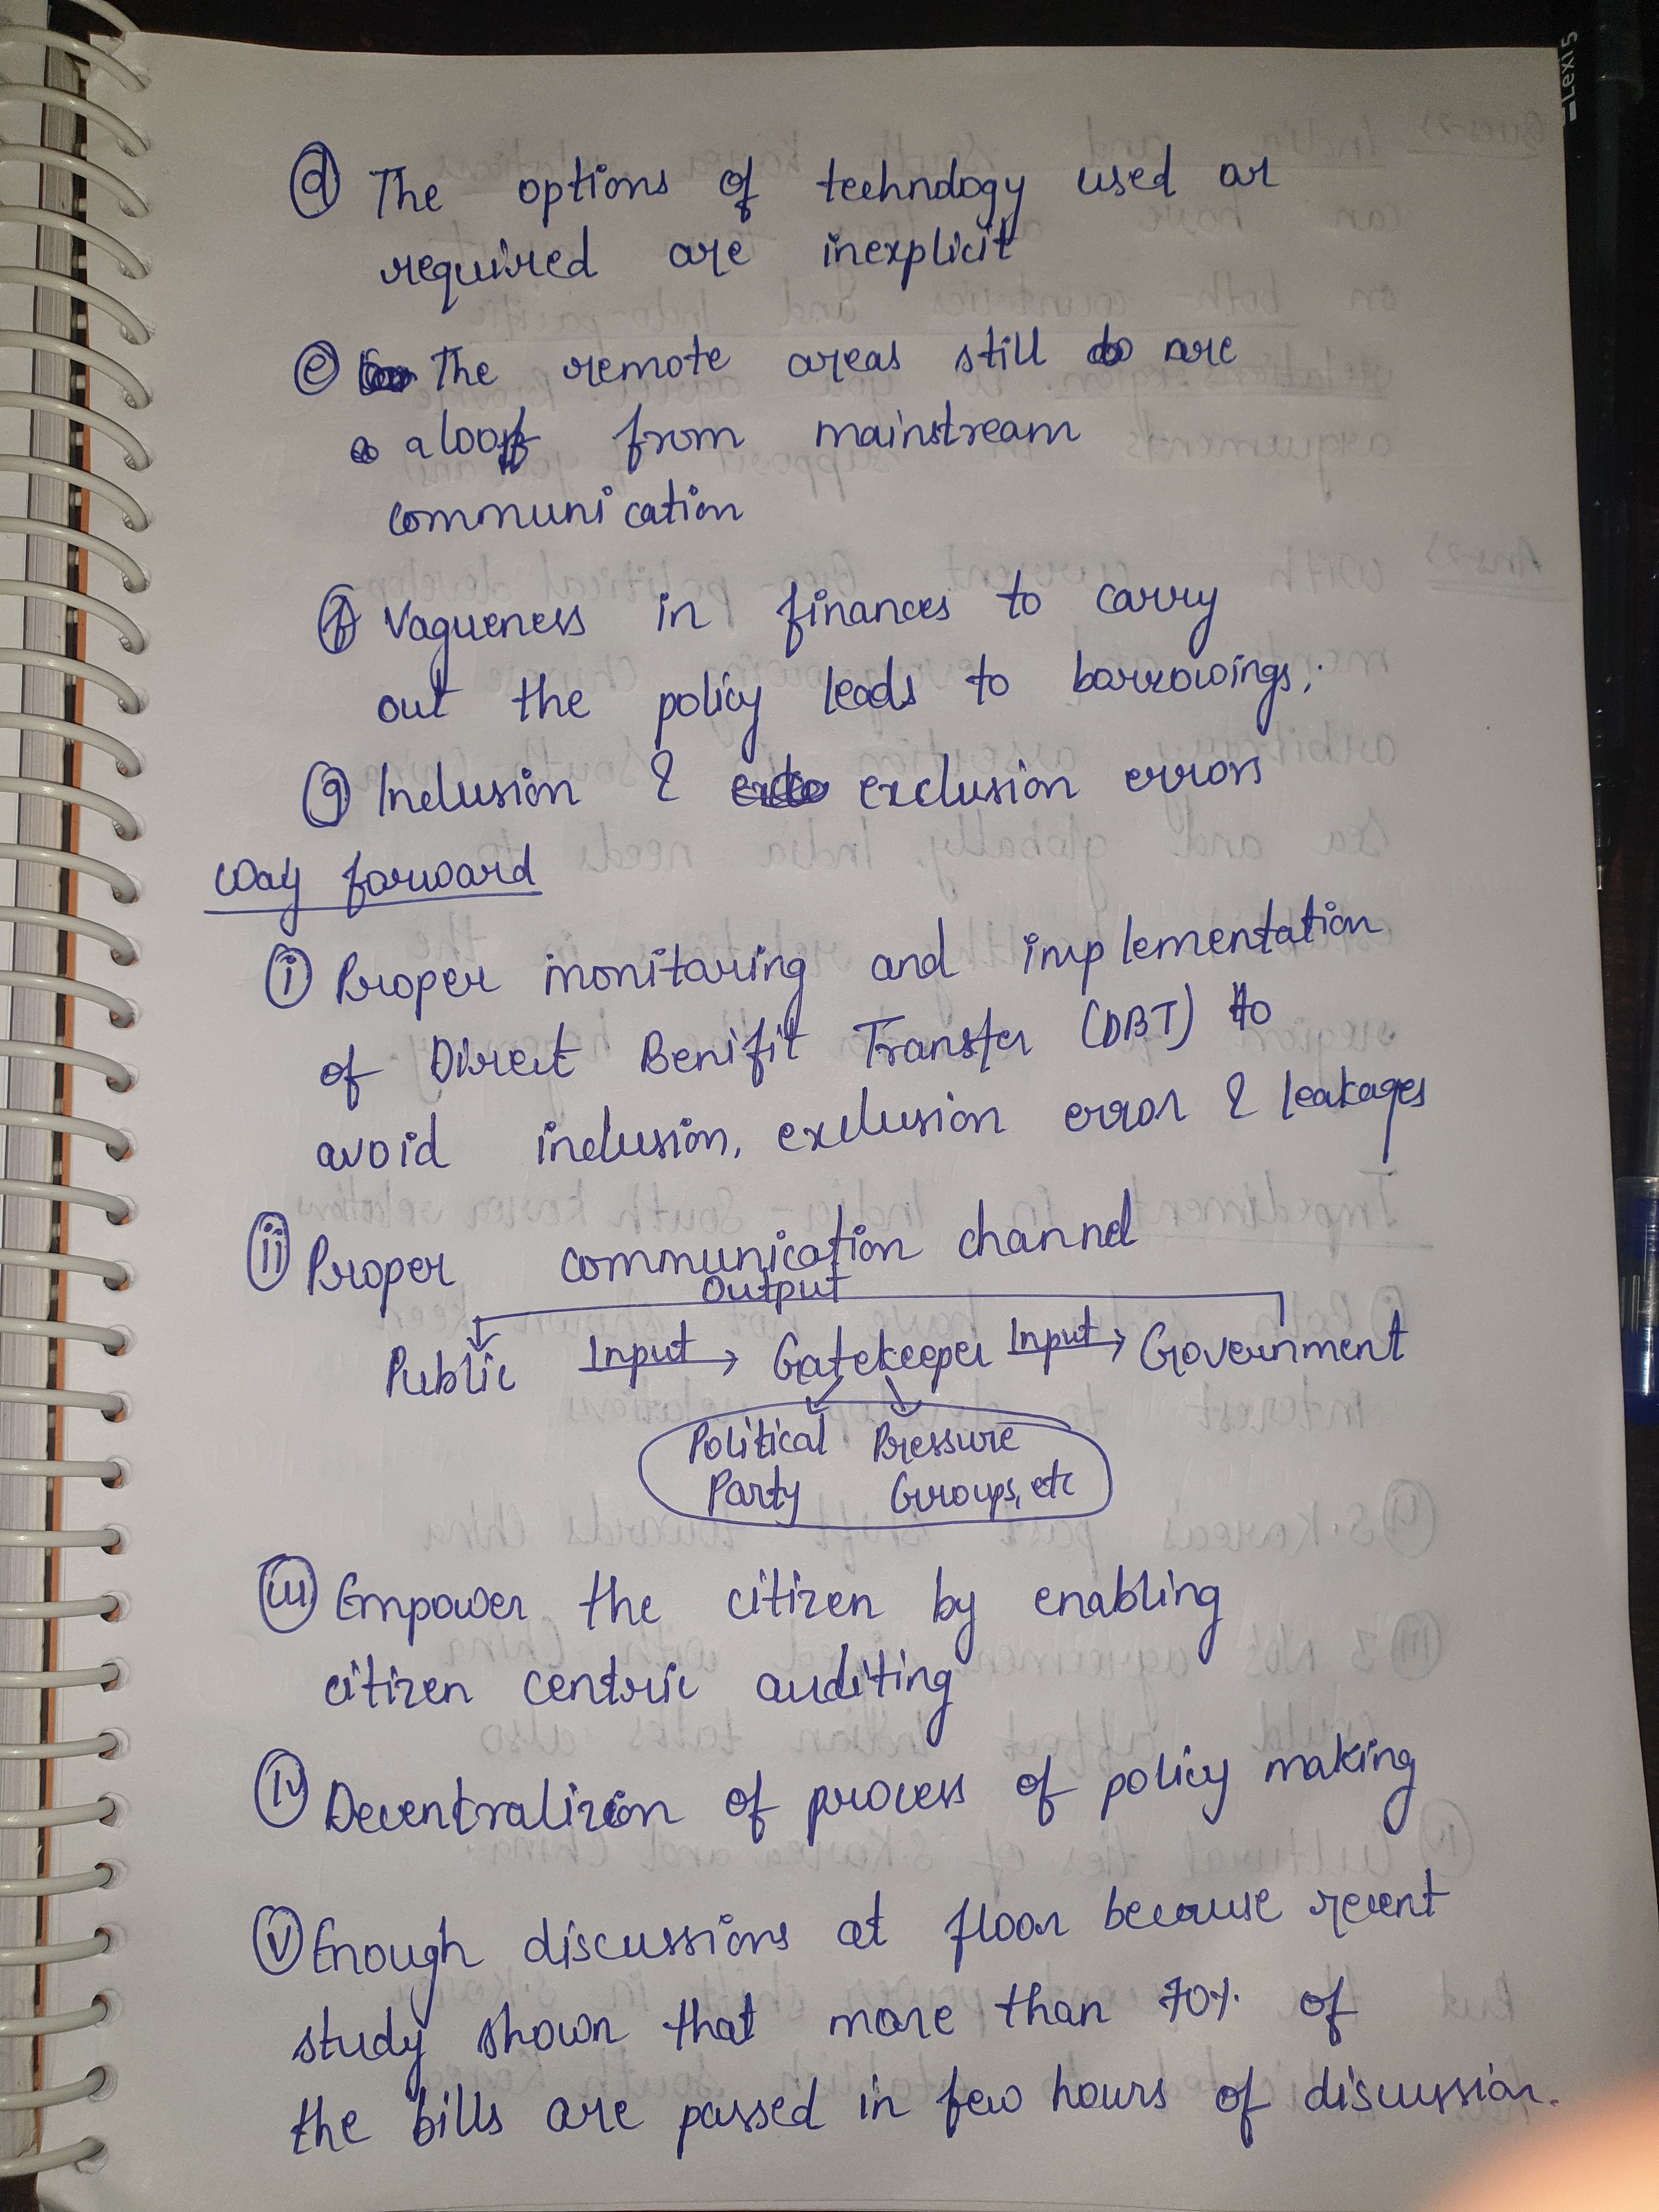 ⓓ The options of technology used or
required are inexplicit
ⓔ The remote areas still are
aloof from mainstream
communication
ⓕ Vagueness in finances to carry
out the policy leads to borrowings;
ⓖ Inclusion & exclusion errors
Way forward
ⓘ Proper monitoring and implementation
of Direct Benifit Transfer (DBT) to
avoid inclusion, exclusion error & leakages
(ii) Proper communication channel
Output
Public Input → Gatekeeper Input → Government
Political Pressure
Party Groups, etc
(iii) Empower the citizen by enabling
citizen centric auditing
(iv) Decentralizion of process of policy making
(v) Enough discussions at floor because recent
study shown that more than 70% of
the bills are passed in few hours of discussion.
Lexi 5